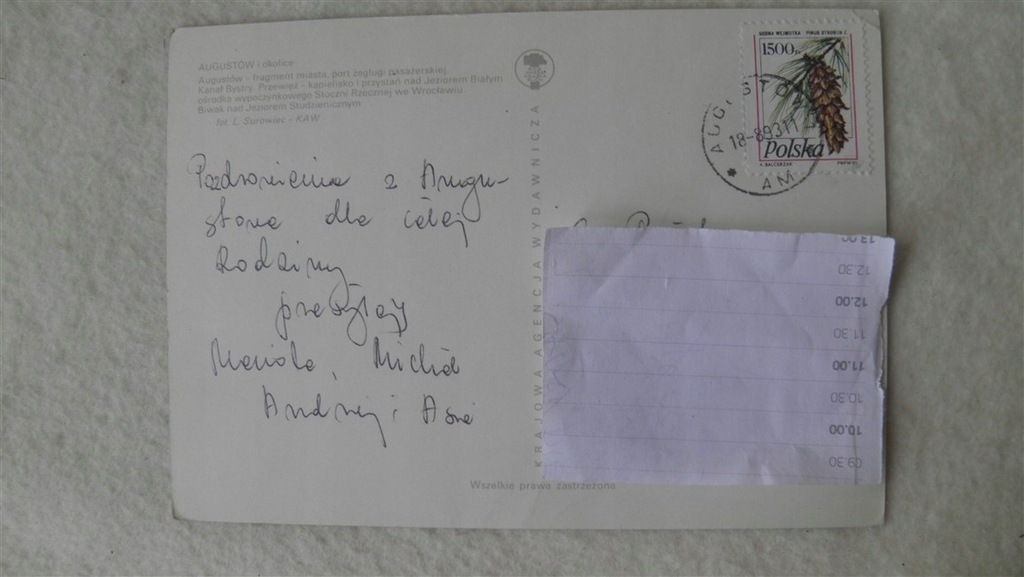 AUGUSTÓW i okolice
Augustów - fragment miasta, port żeglugi pasażerskiej,
Kanał Bystry. Przewięź - kąpielisko i przystań nad Jeziorem Białym
ośrodka wypoczynkowego Stoczni Rzecznej we Wrocławiu.
Biwak nad Jeziorem Studzienicznym
fot. L. Surowiec - KAW
Pozdrowienia z Augu-
stowa dla całej
Rodziny
przesyłają
Mariola, Michał
Andrzej i Asia
KRAJOWA AGENCJA WYDAWNICZA
SOSNA WEJMUTKA PINUS STROBUS L.
1500 zł
Polska
K. BALCERZAK PWPW 93
AUGUSTÓW
18-8.93 17
AM
13.00
12.30
12.00
11.30
11.00
10.30
10.00
09.30
Wszelkie prawa zastrzeżone